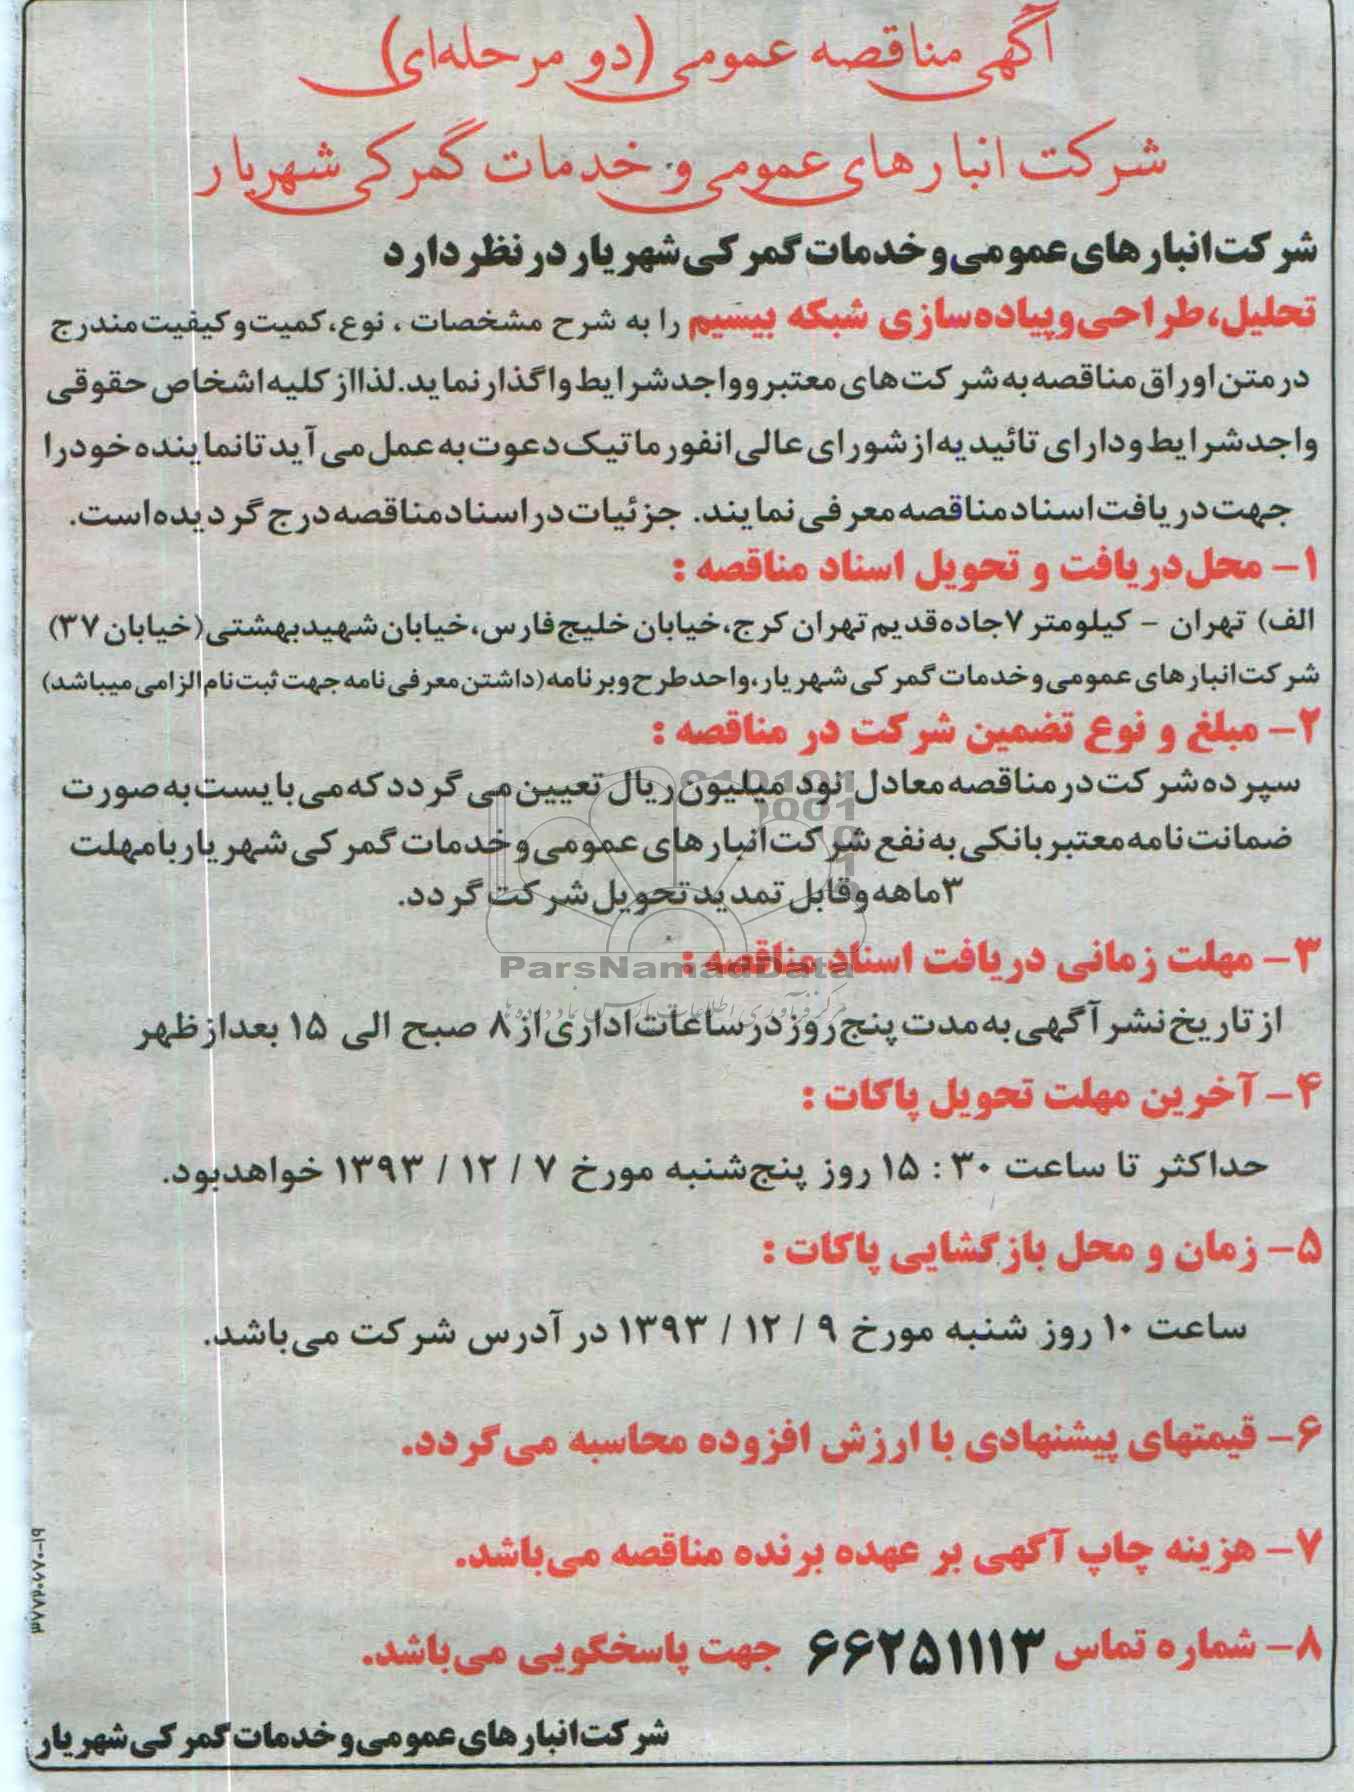 آگهی مناقصه عمومی (دو مرحله‌ای)
شرکت انبارهای عمومی و خدمات گمرکی شهریار
شرکت انبارهای عمومی و خدمات گمرکی شهریار در نظر دارد
تحلیل، طراحی و پیاده‌سازی شبکه بیسیم را به شرح مشخصات ، نوع، کمیت و کیفیت مندرج
در متن اوراق مناقصه به شرکت‌های معتبر و واجد شرایط واگذار نماید. لذا از کلیه اشخاص حقوقی
واجد شرایط و دارای تائیدیه از شورای عالی انفورماتیک دعوت به عمل می آید تا نماینده خود را
جهت دریافت اسناد مناقصه معرفی نمایند. جزئیات در اسناد مناقصه درج گردیده است.
۱- محل دریافت و تحویل اسناد مناقصه :
الف) تهران - کیلومتر ۷ جاده قدیم تهران کرج، خیابان خلیج فارس، خیابان شهید بهشتی (خیابان ۳۷)
شرکت انبارهای عمومی و خدمات گمرکی شهریار، واحد طرح و برنامه (داشتن معرفی نامه جهت ثبت نام الزامی میباشد)
۲- مبلغ و نوع تضمین شرکت در مناقصه :
سپرده شرکت در مناقصه معادل نود میلیون ریال تعیین می گردد که می بایست به صورت
ضمانت نامه معتبر بانکی به نفع شرکت انبارهای عمومی و خدمات گمرکی شهریار با مهلت
۳ ماهه و قابل تمدید تحویل شرکت گردد.
۳- مهلت زمانی دریافت اسناد مناقصه :
ParsNamadData
از تاریخ نشر آگهی به مدت پنج روز در ساعات اداری از ۸ صبح الی ۱۵ بعد از ظهر
۴- آخرین مهلت تحویل پاکات :
حداکثر تا ساعت ۳۰ : ۱۵ روز پنج‌شنبه مورخ ۷ / ۱۲ / ۱۳۹۳ خواهد بود.
۵- زمان و محل بازگشایی پاکات :
ساعت ۱۰ روز شنبه مورخ ۹ / ۱۲ / ۱۳۹۳ در آدرس شرکت می‌باشد.
۶- قیمتهای پیشنهادی با ارزش افزوده محاسبه می‌گردد.
۷- هزینه چاپ آگهی بر عهده برنده مناقصه می‌باشد.
۸- شماره تماس ۶۶۲۵۱۱۱۳ جهت پاسخگویی می‌باشد.
شرکت انبارهای عمومی و خدمات گمرکی شهریار